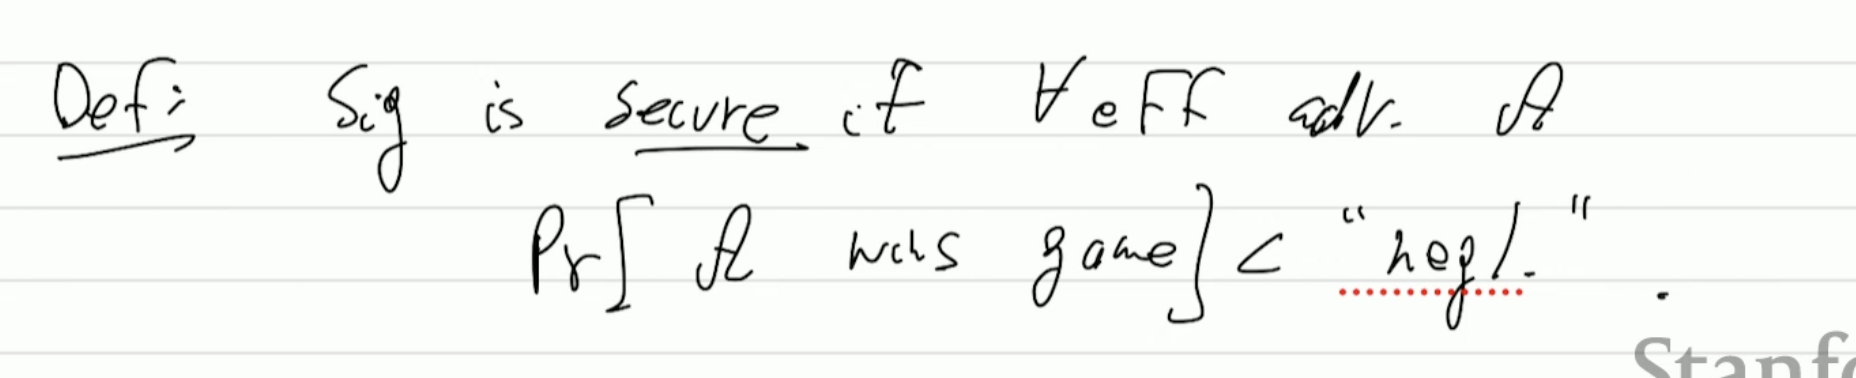 Def: Sig is secure if ∀ eff adv. A
Pr[ A wins game] < "negl." .
Stanf